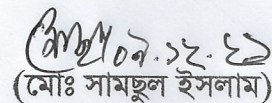 ০৯.১২.২১
(মোঃ সামছুল ইসলাম)